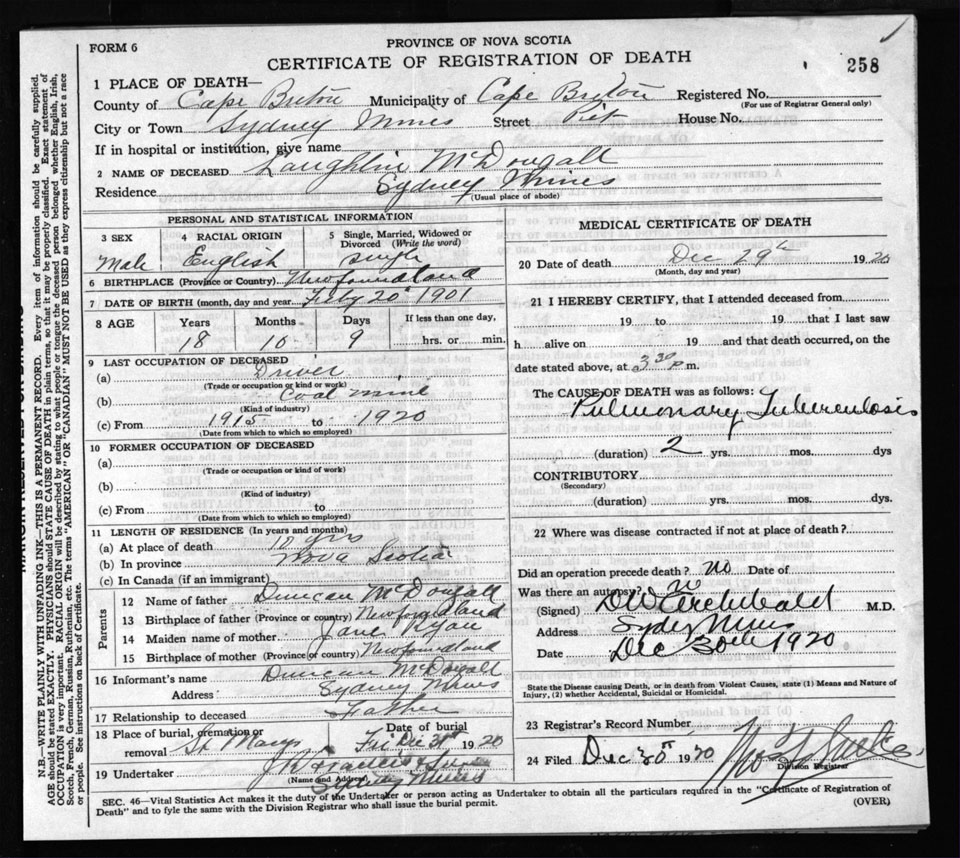 FORM 6
PROVINCE OF NOVA SCOTIA
CERTIFICATE OF REGISTRATION OF DEATH
258
1 PLACE OF DEATH—
County of Cape Breton Municipality of Cape Breton Registered No.
(For use of Registrar General only)
City or Town Sydney Mines Street Pit House No.
If in hospital or institution, give name
2 NAME OF DECEASED Laughlin McDougall
Residence Sydney Mines
(Usual place of abode)
PERSONAL AND STATISTICAL INFORMATION
3 SEX 4 RACIAL ORIGIN 5 Single, Married, Widowed or Divorced (Write the word)
Male English Single
6 BIRTHPLACE (Province or Country) Newfoundland
7 DATE OF BIRTH (month, day and year) 20 1901
8 AGE Years Months Days If less than one day,
18 10 9 hrs. or min.
9 LAST OCCUPATION OF DECEASED
(a) Driver
(Trade or occupation or kind or work)
(b) Coal mine
(Kind of industry)
(c) From 1915 to 1920
(Date from which to which so employed)
10 FORMER OCCUPATION OF DECEASED
(a)
(Trade or occupation or kind of work)
(b)
(Kind of industry)
(c) From to
(Date from which to which so employed)
11 LENGTH OF RESIDENCE (In years and months)
(a) At place of death yrs
(b) In province Nova Scotia
(c) In Canada (if an immigrant)
Parents
12 Name of father Duncan McDougall
13 Birthplace of father (Province or country) Newfoundland
14 Maiden name of mother Jane Ryan
15 Birthplace of mother (Province or country) Newfoundland
16 Informant's name Duncan McDougall
Address Sydney Mines
17 Relationship to deceased Father
18 Place of burial, cremation or removal St Marys Date of burial Dec 31st 1920
19 Undertaker
(Name and Address)
Sydney Mines
MEDICAL CERTIFICATE OF DEATH
20 Date of death Dec 29 1920
(Month, day and year)
21 I HEREBY CERTIFY, that I attended deceased from
19 to 19 that I last saw
h alive on 19 and that death occurred, on the
date stated above, at 3 30 p m.
The CAUSE OF DEATH was as follows:
Pulmonary Tuberculosis
(duration) 2 yrs. mos. dys
CONTRIBUTORY
(Secondary)
(duration) yrs. mos. dys.
22 Where was disease contracted if not at place of death?
Did an operation precede death? no Date of
Was there an autopsy? no
(Signed) DW Archibald M.D.
Address Sydney Mines
Date Dec 30th 1920
State the Disease causing Death, or in death from Violent Causes, state (1) Means and Nature of
Injury, (2) whether Accidental, Suicidal or Homicidal.
23 Registrar's Record Number
24 Filed Dec 30 1920
Division Registrar
SEC. 46—Vital Statistics Act makes it the duty of the Undertaker or person acting as Undertaker to obtain all the particulars required in the "Certificate of Registration of
Death" and to fyle the same with the Division Registrar who shall issue the burial permit.
(OVER)
N.B.—WRITE PLAINLY WITH UNFADING INK—THIS IS A PERMANENT RECORD. Every item of information should be carefully supplied.
AGE should be stated EXACTLY. PHYSICIANS should STATE CAUSE OF DEATH in plain terms, so that it may be properly classified. Exact statement of
OCCUPATION is very important. RACIAL ORIGIN will be described by stating to what people or tongue the deceased person belonged, whether English, Irish,
Scotch, French, German, Russian, Ruthenian, etc. The terms "AMERICAN" or "CANADIAN" MUST NOT BE USED as they express citizenship but not a race
or people. See instructions on back of Certificate.